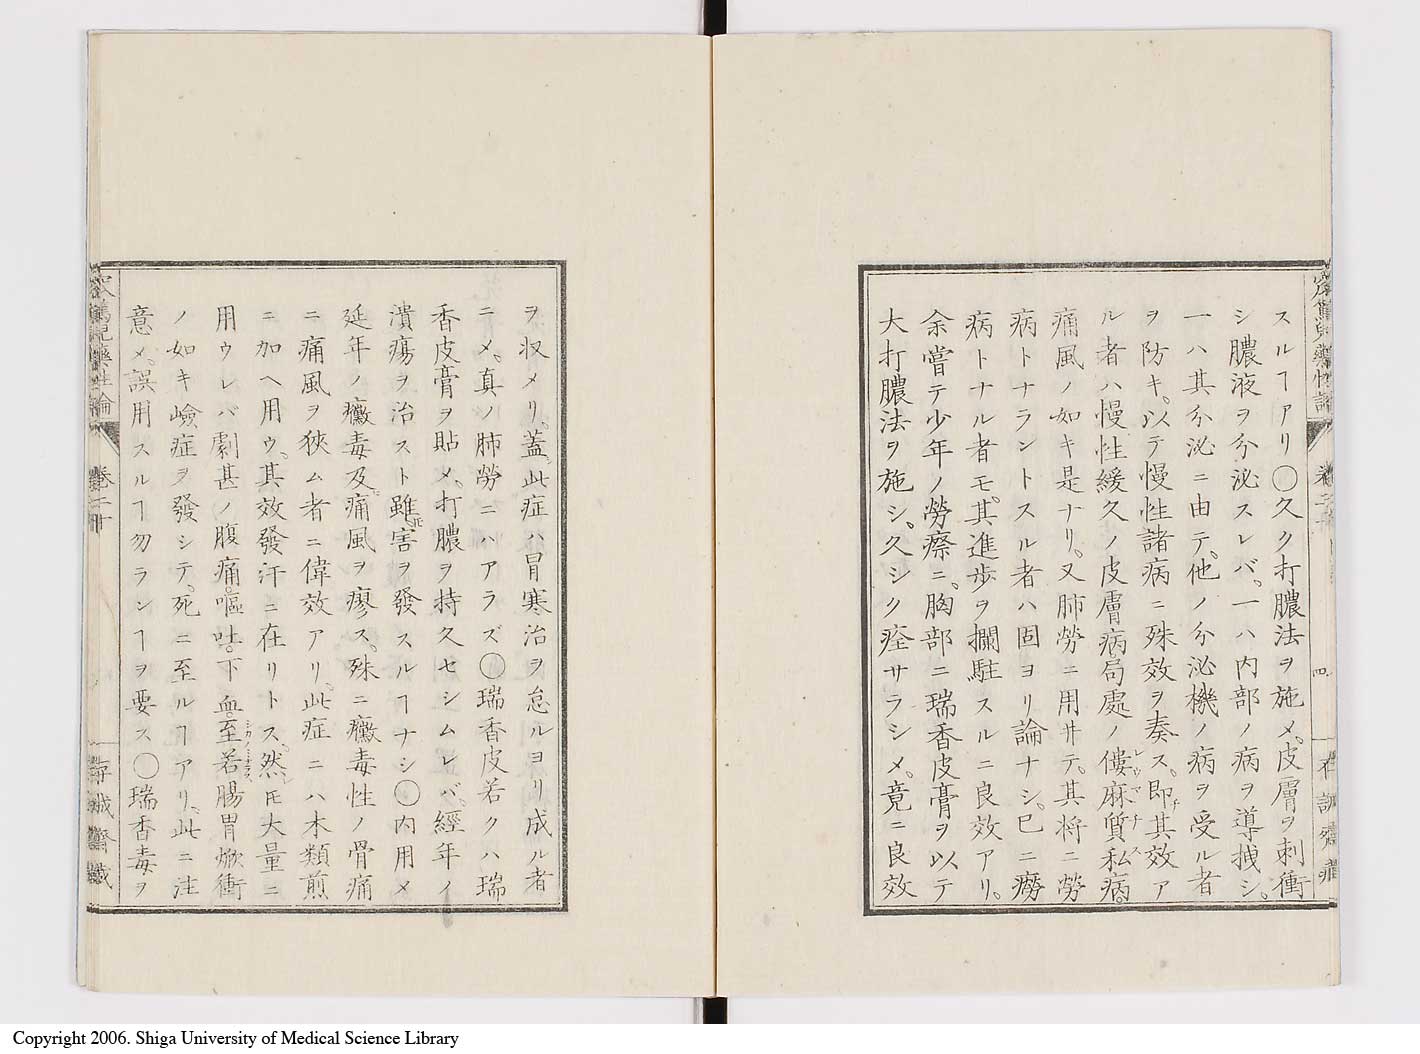 スルヿアリ〇久ク打膿法ヲ施メ、皮膚ヲ刺衝
シ膿液ヲ分泌スレバ、一ハ内部ノ病ヲ導拽シ。
一ハ其分泌ニ由テ。他ノ分泌機ノ病ヲ受ル者
ヲ防キ。以テ慢性諸病ニ殊效ヲ奏ス。即其效ア
ル者ハ慢性緩久ノ皮膚病。局處ノ僂麻質私病。
痛風ノ如キ是ナリ。又肺勞ニ用ヰテ。其将ニ勞
病トナラントスル者ハ固ヨリ論ナシ。已ニ癆
病トナル者モ。其進歩ヲ攔駐スルニ良效アリ。
余嘗テ少年ノ勞瘵ニ。胸部ニ瑞香皮膏ヲ以テ
大打膿法ヲ施シ。久シク痊サラシメ。竟ニ良效
四
ヲ収メリ。蓋此症ハ冒寒治ヲ怠ルヨリ成ル者
ニメ。真ノ肺勞ニハアラズ〇瑞香皮若クハ瑞
香皮膏ヲ貼メ。打膿ヲ持久セシムレバ。經年ノ
潰瘍ヲ治スト雖モ害ヲ發スルヿナシ〇内用メ
延年ノ黴毒及痛風ヲ療ス。殊ニ黴毒性ノ骨痛
ニ痛風ヲ狹ム者ニ偉效アリ。此症ニハ木類煎
ニ加ヘ用ウ。其效發汗ニ在リトス。然𪜈大量ニ
用ウレバ劇甚ノ腹痛。嘔吐。下血。至若腸胃焮衝
ノ如キ嶮症ヲ發シテ。死ニ至ルヿアリ。此ニ注
意メ。誤用スルヿ勿ランヿヲ要ス〇瑞香毒ヲ
藥性論
卷二十
Copyright 2006. Shiga University of Medical Science Library